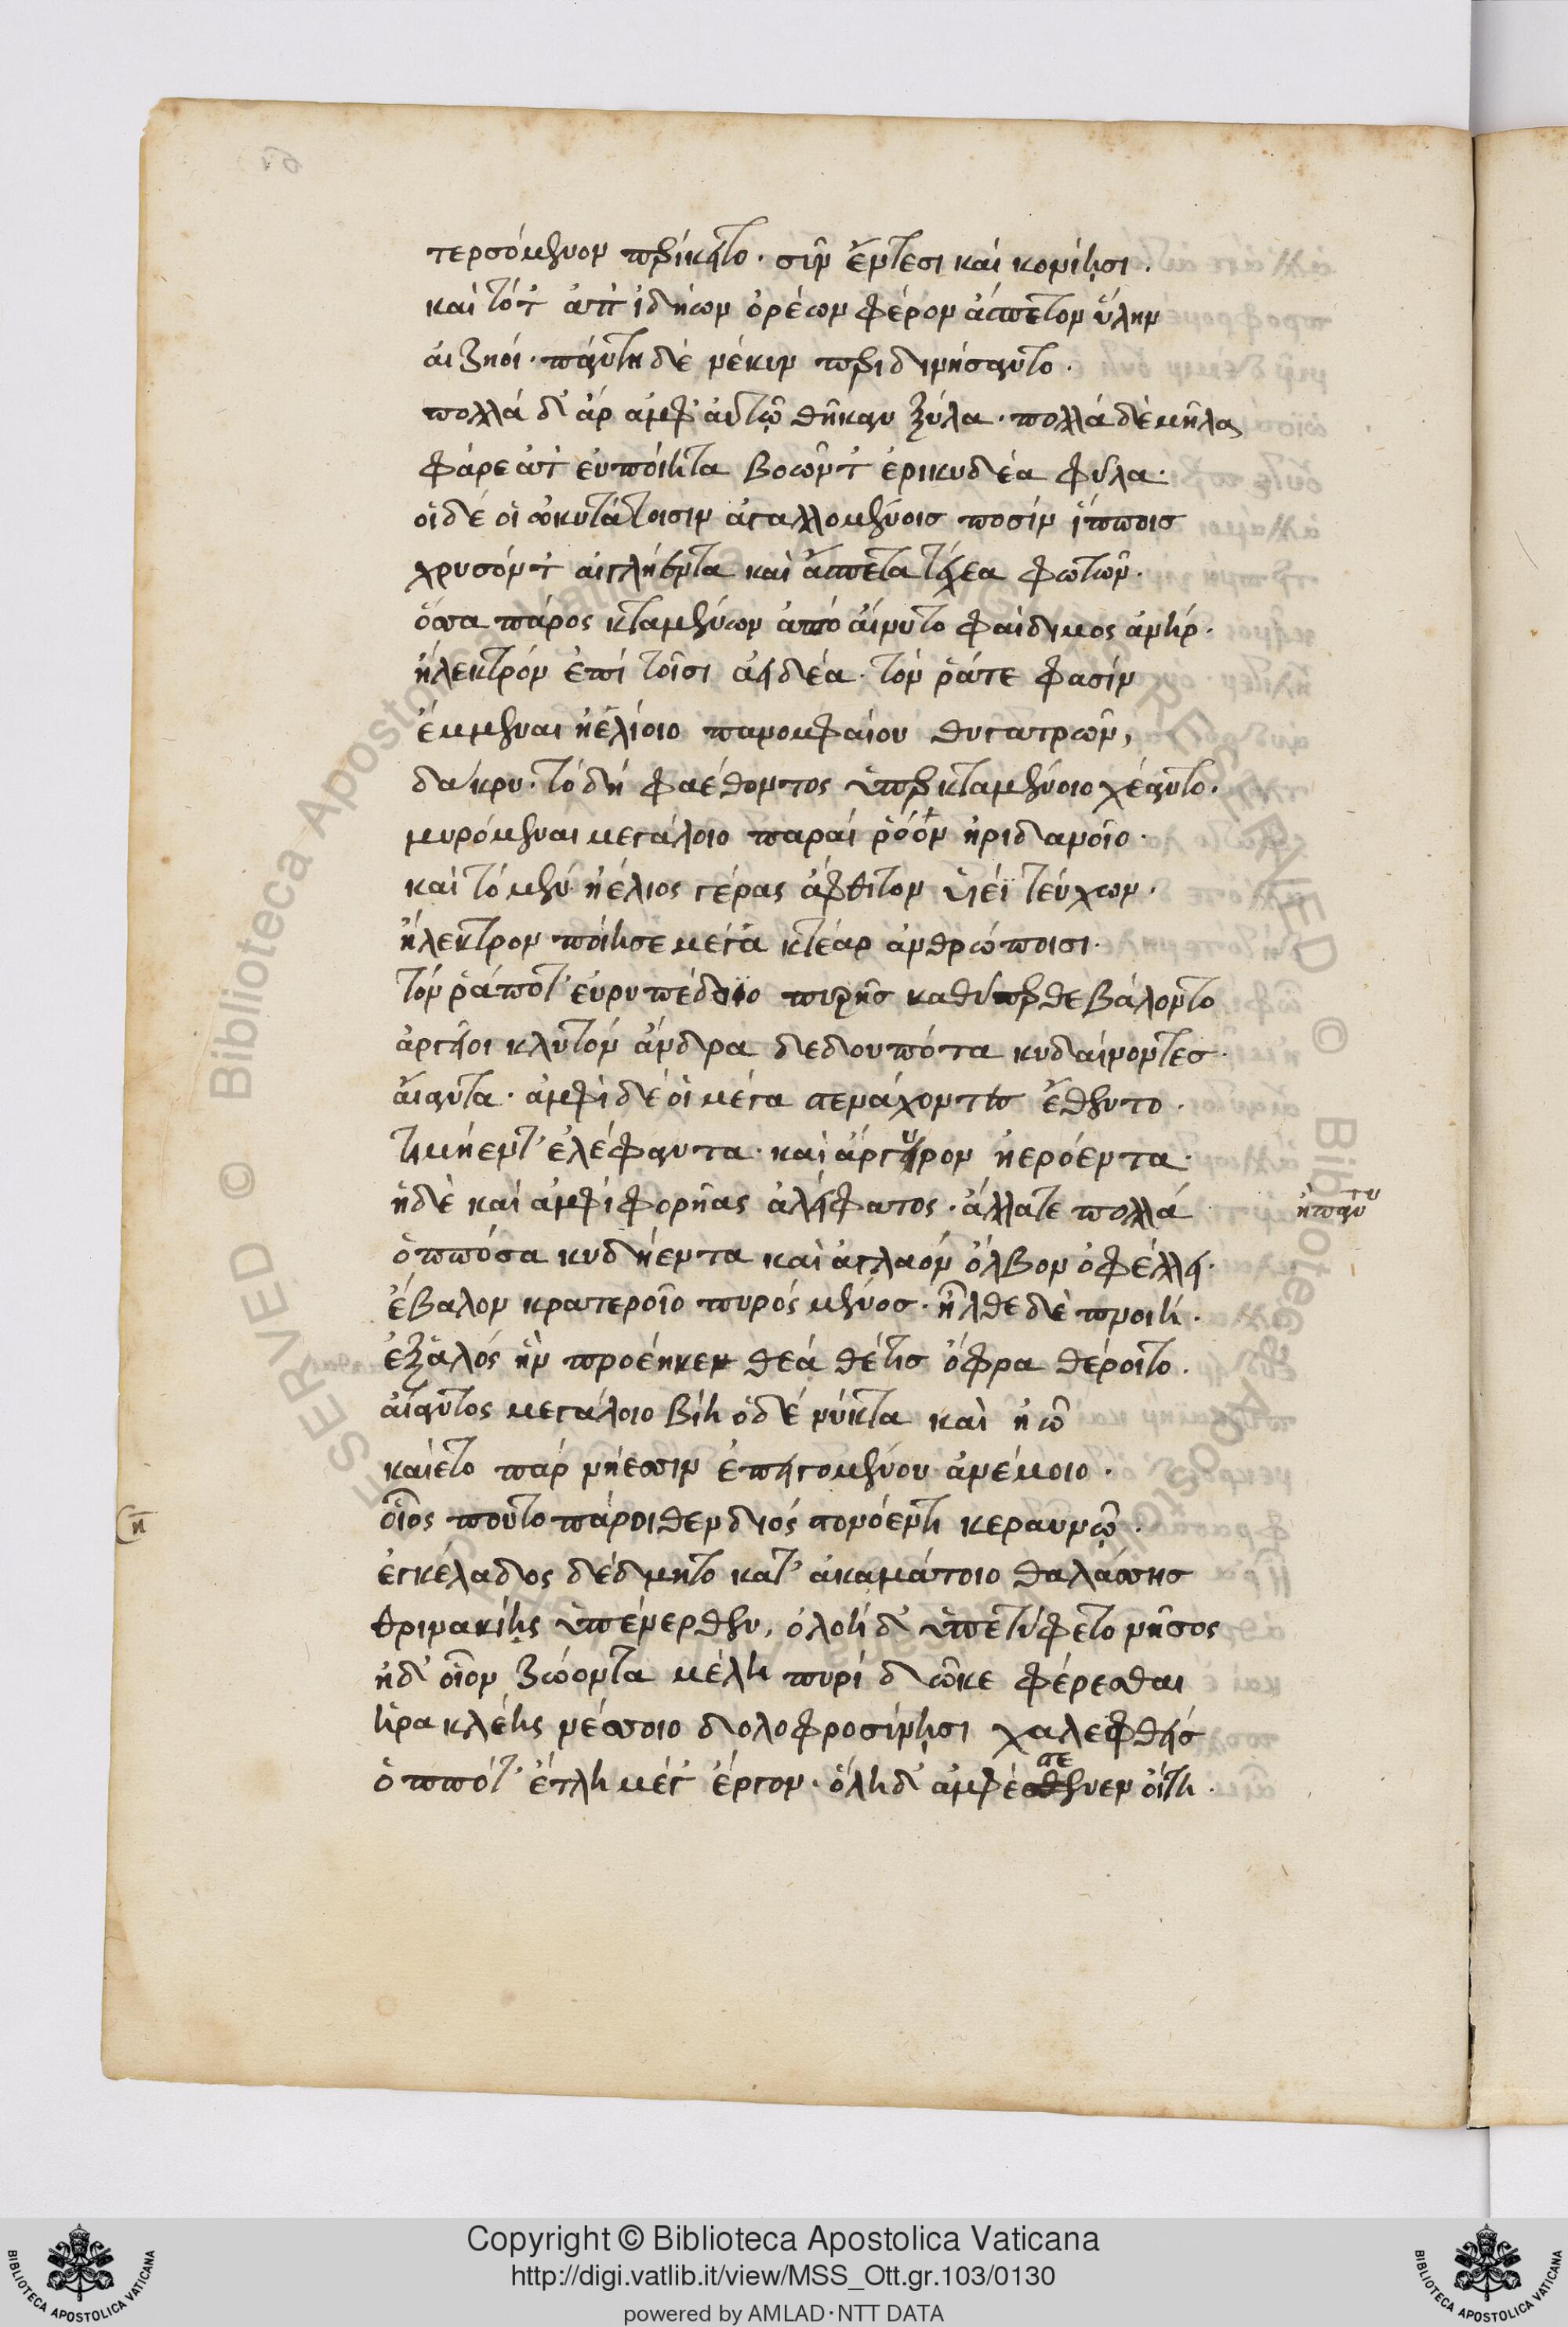 τερσόμενον περικεῖτο· σὺν ἔντεσι καὶ κονίῃσι.
καὶ τότ' ἀπ' ἰδήων ὀρέων φέρον ἄσπετον ὕλην
αἰζηοί· πάντη δὲ νέκυν περιδινήσαντο.
πολλὰ δ' ἂρ ἀμφ' αὐτῷ θῆκαν ξύλα· πολλὰ δὲ μῆλα
φάρεά τ' εὐποίητα βοῶν τ' ἐρικυδέα φῦλα·
οἱ δέ οἱ ὠκυτάτοισιν ἀγαλλομένοις ποσὶν ἵπποις
χρυσόν τ' αἰγλήεντα καὶ ἄσπετα τεύχεα φωτῶν·
ὅσσα πάρος κταμένων ἀπὸ αἴνυτο φαίδιμος ἀνήρ·
ἤλεκτρόν ἐπὶ τοῖσι ἀειδέα· τόν ῥάτε φασὶν
ἔμμεναι ἠελίοιο πανομφαίου θυγατρῶν,
δάκρυ· τὸ δὴ φαέθοντος ὑπὲρ κταμένοιο χέαντο·
μυρόμεναι μεγάλοιο παραὶ ῥόον ἠριδανοῖο·
καὶ τὸ μὲν ἠέλιος γέρας ἄφθιτον υἱέϊ τεύχων·
ἤλεκτρον ποίησε μέγα κτέαρ ἀνθρώποισι·
τόν ῥάποτ' εὐρυπέδοιο πυρῆς καθύπερθε βάλοντο
ἀργεῖοι κλυτὸν ἄνδρα δεδουπότα κυδαίνοντες·
αἴαντα· ἀμφὶ δέ οἱ μέγα στενάχοντες ἔθεντο·
τιμήεντ' ἐλέφαντα· καὶ ἄργυρον ἠερόεντα·
ἠδὲ καὶ ἀμφιφορῆας ἀλείφατος· ἄλλατε πολλά
ὁππόσα κυδήεντα καὶ ἀγλαὸν ὄλβον ὀφέλλει·
ἔβαλον κρατεροῖο πυρὸς μένος· ἦλθε δὲ πνοιή·
ἐξ ἁλός ἣν προέηκεν θεὰ θέτις ὄφρα θέροιτο·
αἴαντος μεγάλοιο βίη ὁδὲ νύκτα καὶ ἠῶ
καίετο πὰρ νήεσσιν ἐπειγομένου ἀνέμοιο·
οἷος που τὸ πάροιθεν διὸς στονόεντι κεραυνῷ·
ἐγκέλαδος δέδμητο κατ' ἀκαμάτοιο θαλάσσης
θρινακίης ὑπένερθεν, ὁλοὴ δ' ὑπετύφετο νῆσος
ἠδ' οἷον ζώοντα μέλη πυρὶ δῶκε φέρεσθαι
ἡρακλέης νέσσοιο δολοφροσύνῃσι χαλεφθεὶς
ὁππότ' ἔτλη μέγ' ἔργον· ὅλη δ' ἀμφέστενεν οἴτη·
ἤπαν
τυ
στε
η